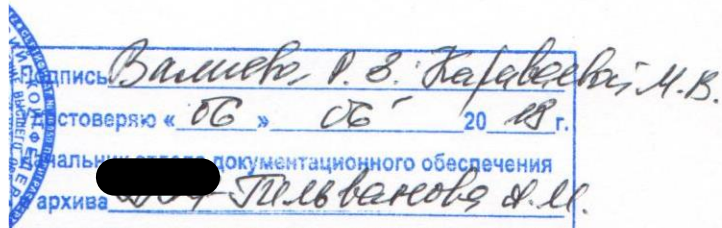 Подпись Валиева Р. З. Караваевой М. В.
достоверяю « 06 » 06 20 18 г.
начальник отдела документационного обеспечения
архива Гильванова А. И.